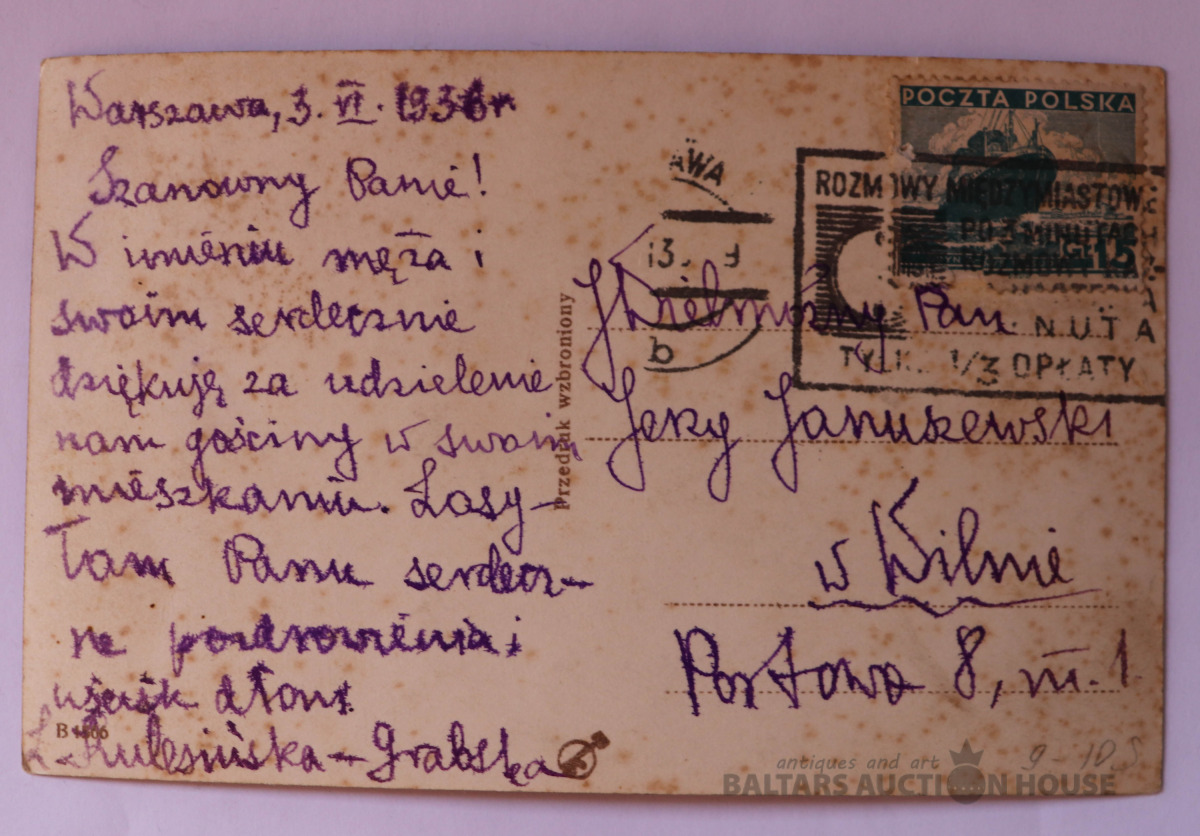 Warszawa, 3. VI. 1936r
Szanowny Panie!
W imieniu męża i
swoim serdecznie
dziękuję za udzielenie
nam gościny w swoim
mieszkaniu. Zasy-
łam Panu serdecz-
ne pozdrowienia i
uścisk dłoni
Kulesińska-Grabska
B 1866
Przedruk wzbroniony
POCZTA POLSKA
GR 15
AWA
13. 9
b
ROZM WY MIĘDZYMIASTOWE
PO 3 MINUTACH
ROZMOWY
NUTA
TYL 1/3 OPŁATY
JWielmożny Pan
Jerzy Januszewski
w Wilnie
Portowa 8, m. 1
9-10.S
antiques and art
BALTARS AUCTION HOUSE